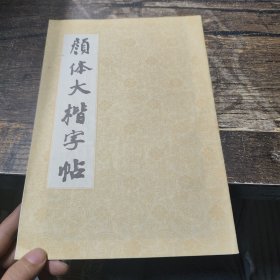 颜体大楷字帖